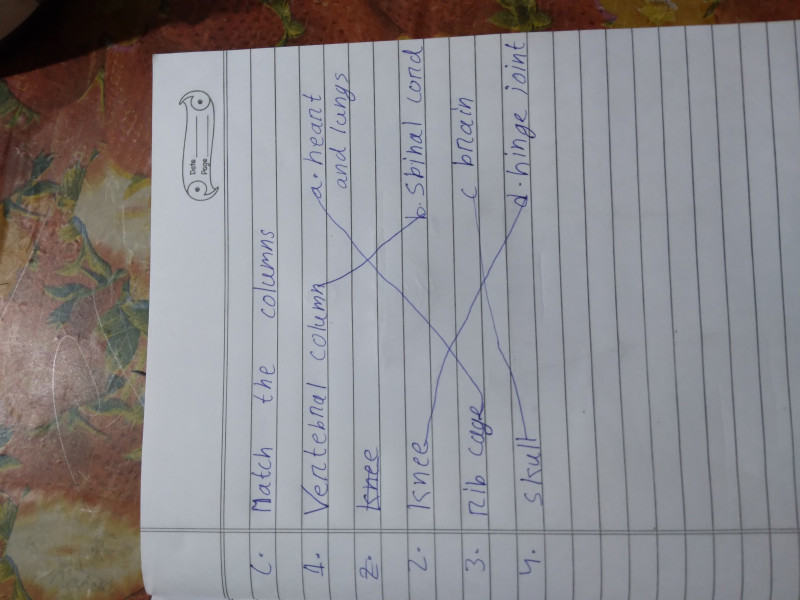 Date
Page
C. Match the columns
1. Vertebral column a. heart and lungs
2. Knee
2. Knee b. Spinal cord
3. Rib cage c brain
4. skull d. hinge joint